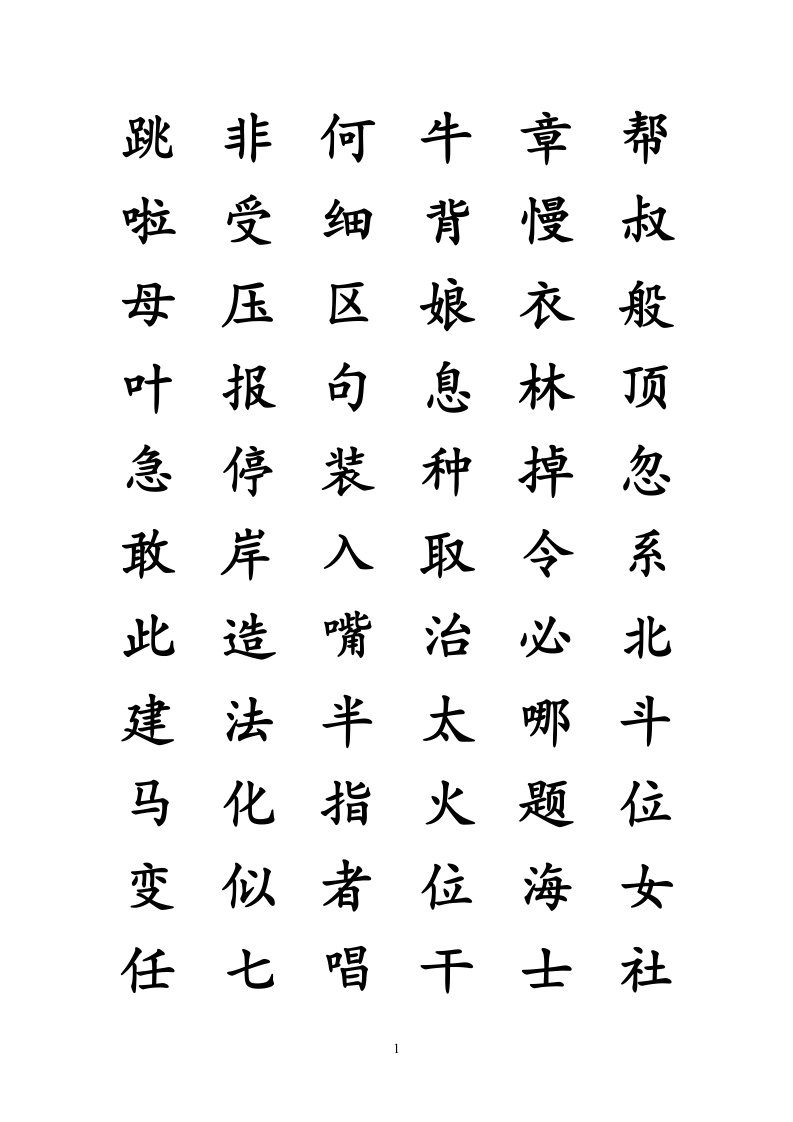 跳 非 何 牛 章 帮
啦 受 细 背 慢 叔
母 压 区 娘 衣 般
叶 报 句 息 林 顶
急 停 装 种 掉 忽
敢 岸 入 取 令 系
此 造 嘴 治 必 北
建 法 半 太 哪 斗
马 化 指 火 题 位
变 似 者 位 海 女
任 七 唱 干 士 社
1